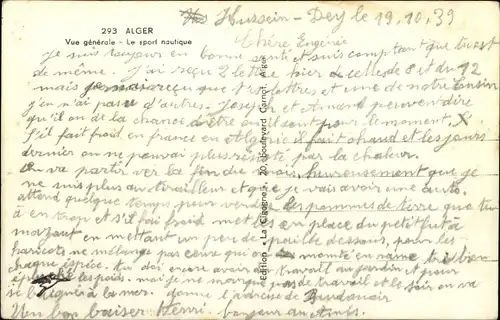 293 ALGER
Vue générale - Le sport nautique
Hussein-Dey le 19.10.39
Chère Eugénie
je suis toujours en bonne santé et suis comptant que tu est
de même. J'ai reçu 2 lettre hier celles de 8 et du 12
mais je n'ai reçu que tes lettres et une de notre cousin
j'en n'ai pas d'autres. Joseph et Armand peuvent dire
qu'il on de la chance d'être ou il sont pour le moment. X
S'il fait froid en france en Algérie il fait chaud et les jours
dernier on ne pouvai plus resister par la chaleur.
On va partir ver la fin du mois, heureusement que je
ne suis plus au tirailleur et que je vais avoir une auto.
attend quelque temps pour vendre les pommes de terre que tu
a en trop et s'il fai froid met les en place du petit fut à
mazout en mettant un peu de paille dessous, pour les
haricots ne mélange pas ceux qui on
chaque espèce. tu doi encore avoir du travail au jardin et pour
je ne manque pas de travail et le soir on va
se à la mer. donne l'adresse de
Un bon baiser Henri. bonjour au Amis.
Edition "La Cigogne", 20, boulevard Carnot, Alger